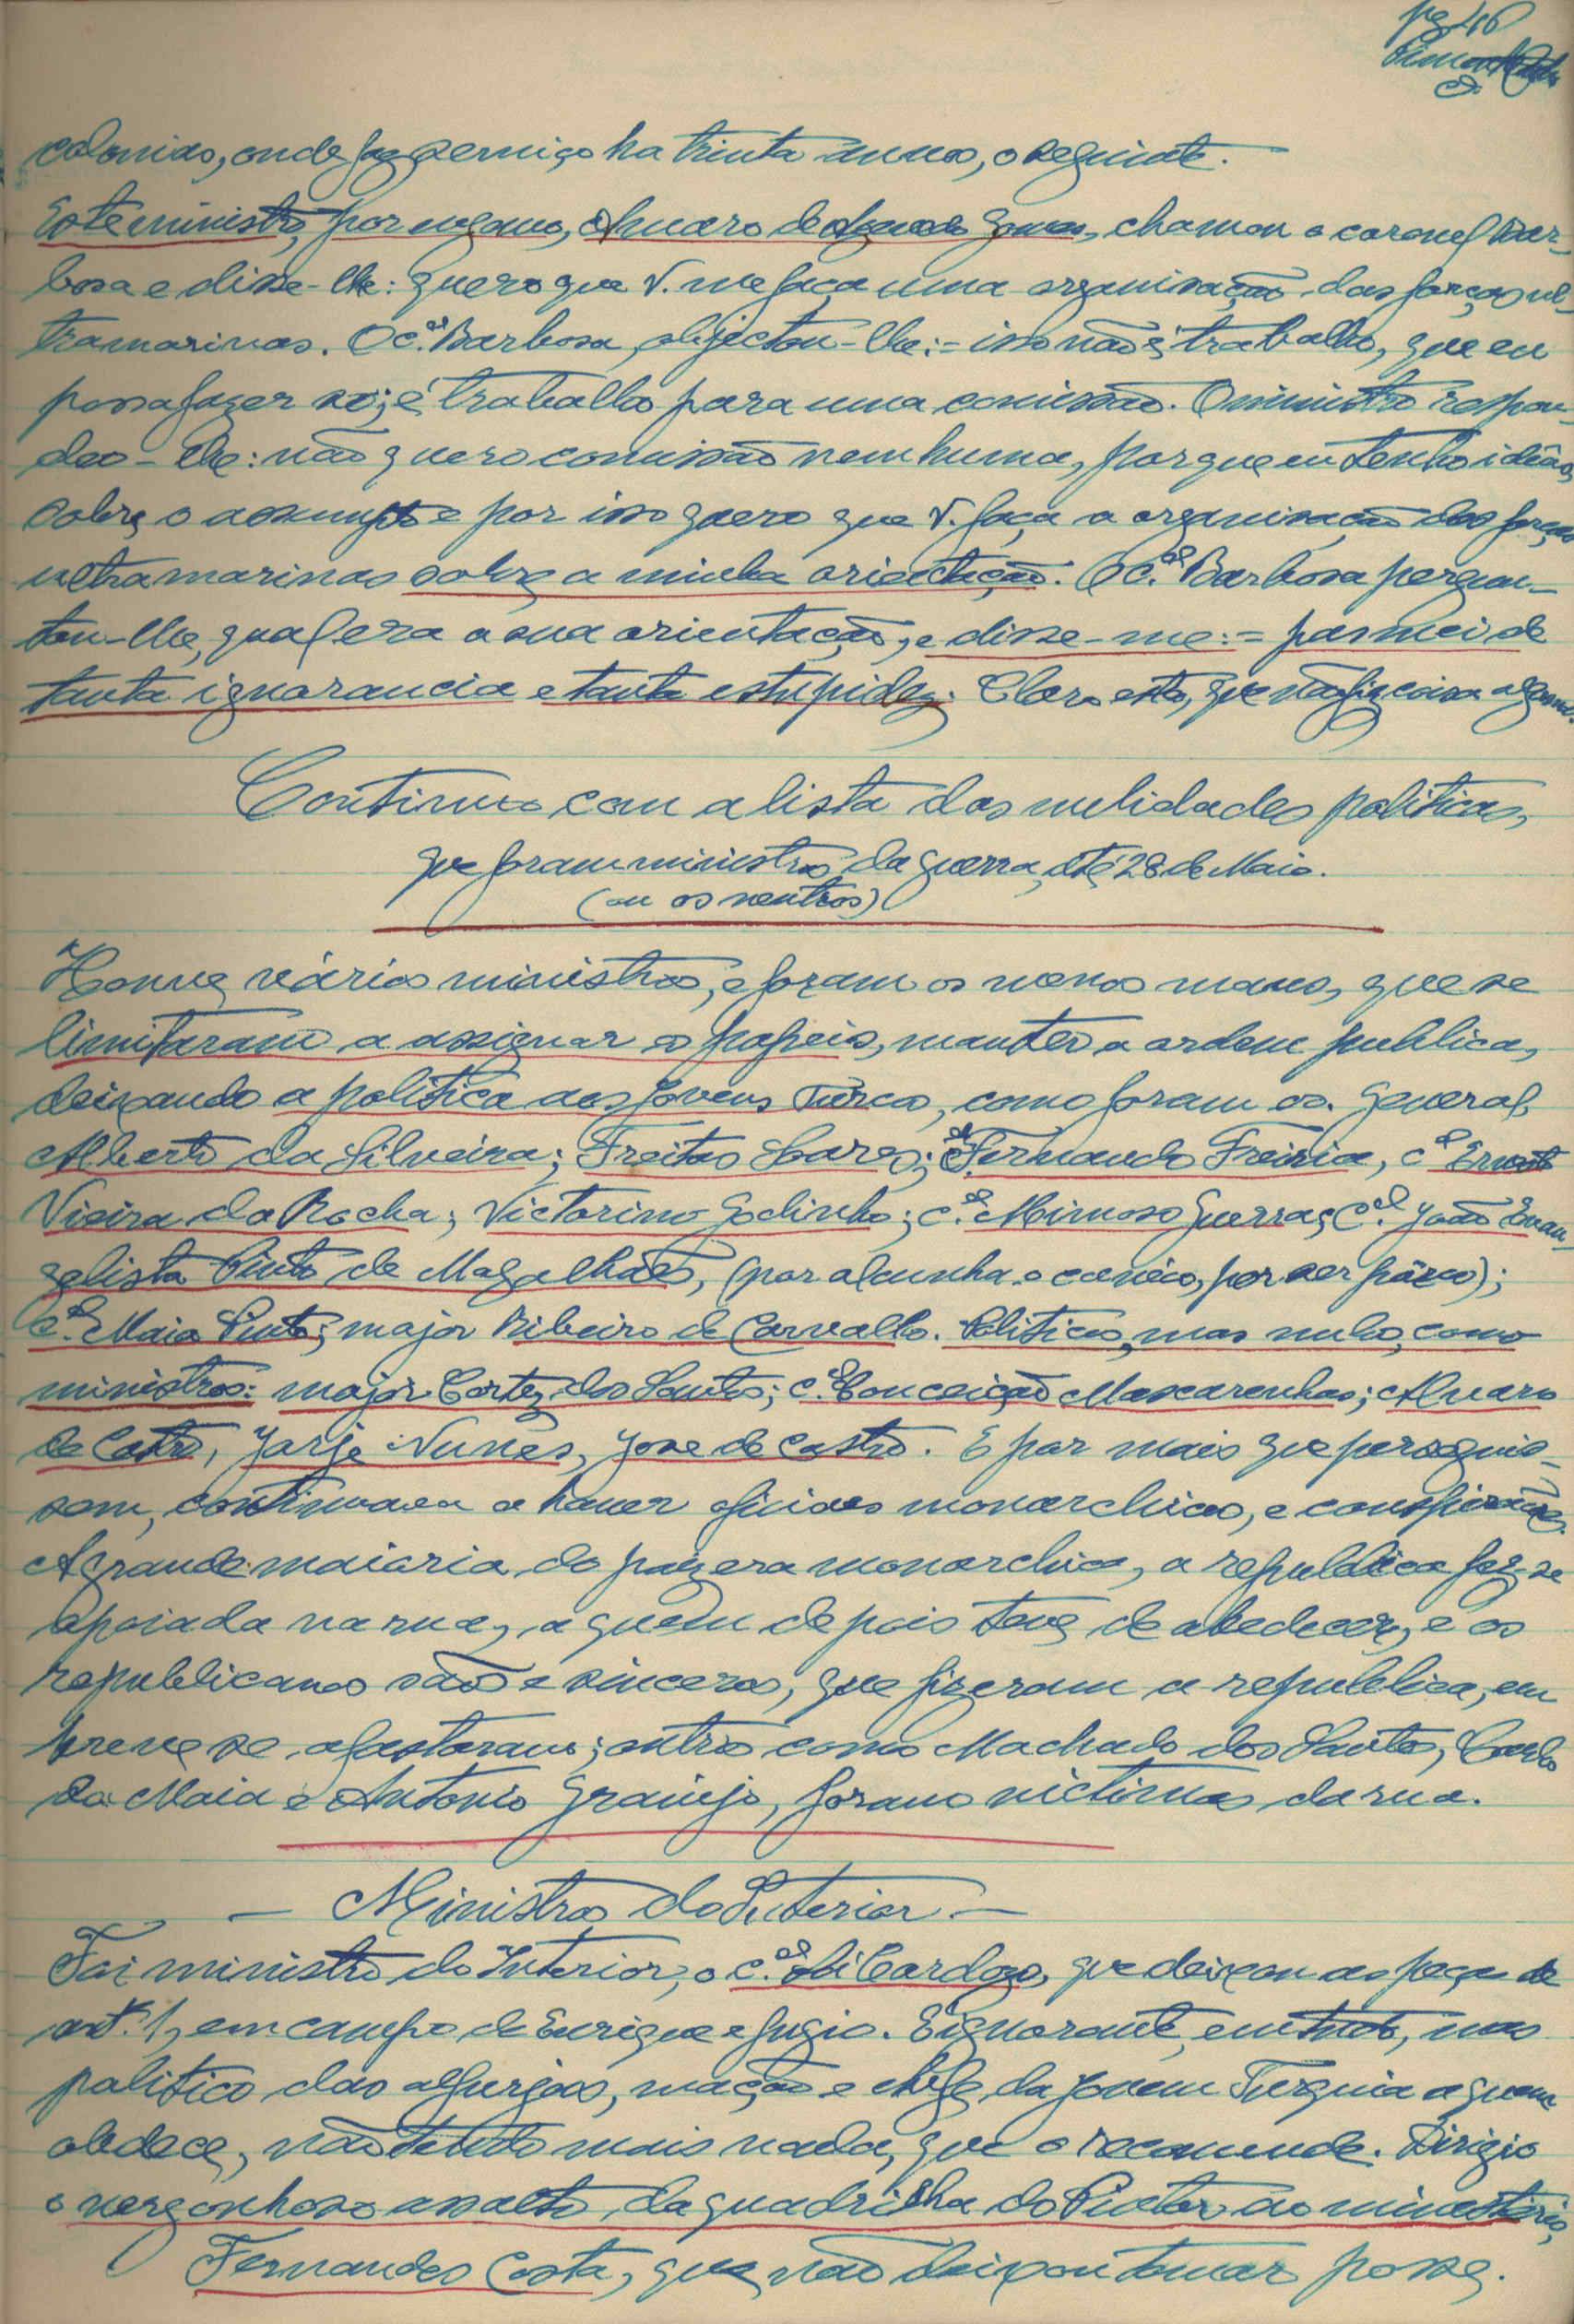 pg 46
colonias, onde faz serviço ha trinta annos, o seguinte.
Este ministro, por engano, Alvaro de Gomes, chamou o coronel Bar-
bosa e disse-lhe: quero que V. me faça uma organisação das forças ul-
tramarinas. O c.el Barbosa, objectou-lhe:= isso não é trabalho, que eu
possa fazer só; é trabalho para uma comissão. O ministro respon-
deo-lhe: não quero comissão nemhuma, porque eu tenho idêas
sobre o assumpto e por isso quero que V. faça a organisação das forças
ultramarinas sobre a minha orientação. O c.el Barbosa pergun-
tou-lhe, qual era a sua orientação, e disse-me:= pasmei de
tanta ignorancia e tanta estupidez. Claro está, que não fiz coisa alguma.
Continuo com a lista das nulidades politicas,
que foram ministros da guerra, até 28 de Maio.
(ou os neutros)
Houve vários ministros, e foram os menos maus, que se
limitaram a assignar os papeis, manter a ordem publica,
deixando a politica aos jovens turcos, como foram os. General
Alberto da Silveira; Freitas Soares; Fernando Freiria, c.el Ernesto
Vieira da Rocha; Victorino Godinho; c.el Mimoso Guerra; C.el João Evan-
gelista Pinto de Magalhães, (por alcunha o conego, por ser pároco);
C.el Maia Pinto; major Ribeiro de Carvalho. Politicos, mas nulos, como
ministros: major Cortez dos Santos; c.el Conceição Mascarenhas; Alvaro
de Castro, Jorge Nunes, Jose de Castro. E por mais que perseguis-
sem, continuava a haver oficiaes monarchicos, e conspirações.
A grande maioria do paiz era monarchica, a republica fez-se
apoiada na rua, a quem depois teve de obedecer, e os
republicanos sãos e sinceros, que fizeram a republica, em
breve se afastaram; outros como Machado dos Santos, Carlos
da Maia e Antonio Granjo, foram victimas da rua.
— Ministros do Interior —
Foi ministro do Interior, o c.el Sá Cardozo, que deixou as peças de
art. 1, em campo de Ourique e fugio. Ignorante, em tudo, mas
politico das alfurjas, mação e chefe da Jovem Turquia a quem
obedece, não tendo mais nada, que o recomende. Dirigio
o vergonhoso assalto da quadrilha do Pintor ao ministério,
Fernandes Costa, que não deixou tomar posse.